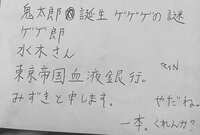 鬼太郎誕生 ゲゲゲの謎
ゲゲ郎
水木さん
東京帝国血液銀行。
みずきと申します。
やだね。
一本。くれんか?